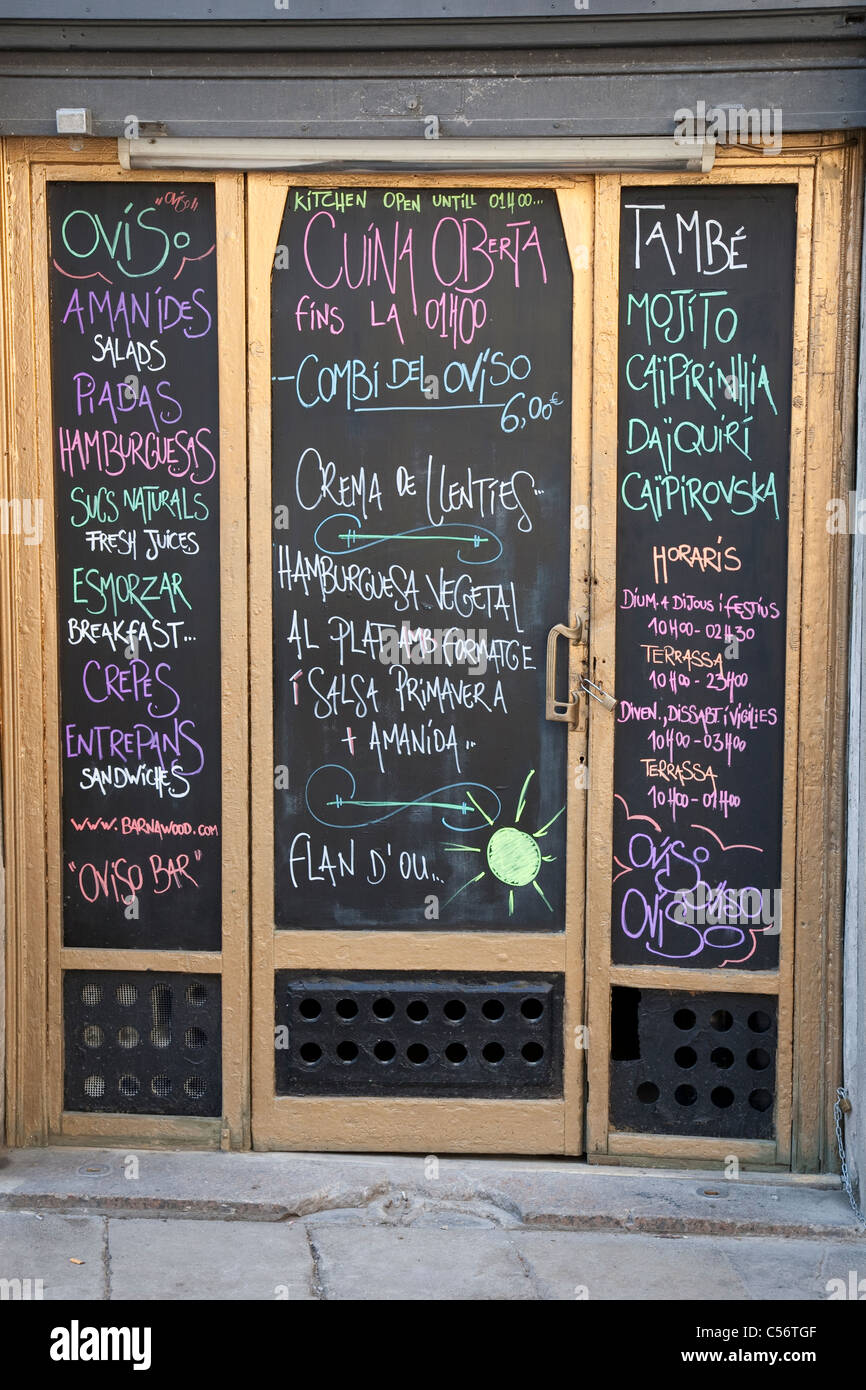 "OVISO"
OVISO
AMANÍDES
SALADS
PIADAS
HAMBURGUESAS
SUCS NATURALS
FRESH JUICES
ESMORZAR
BREAKFAST...
CREPES
ENTREPANS
SANDWICHES
WWW.BARNAWOOD.COM
"OVISO BAR"
KITCHEN OPEN UNTILL 01H00...
CUINA OBERTA
FINS LA 01H00
-COMBÍ DEL OVISO
6,00€
CREMA DE LLENTIES...
HAMBURGUESA VEGETAL
AL PLAT AMB FORMATGE
I SALSA PRIMAVERA
+ AMANIDA...
FLAN D'OU...
TAMBÉ
MOJITO
CAÏPIRINHIA
DAÏQUIRÍ
CAÏPIROVSKA
HORARIS
DIUM. A DIJOUS I FESTIUS
10H00-02H30
TERRASSA
10H00-23H00
DIVEN., DISSABT. I VIGILIES
10H00-03H00
TERRASSA
10H00-01H00
OVISO
OVISO
OVISO
alamy
alamy
Image ID: C56TGF
www.alamy.com